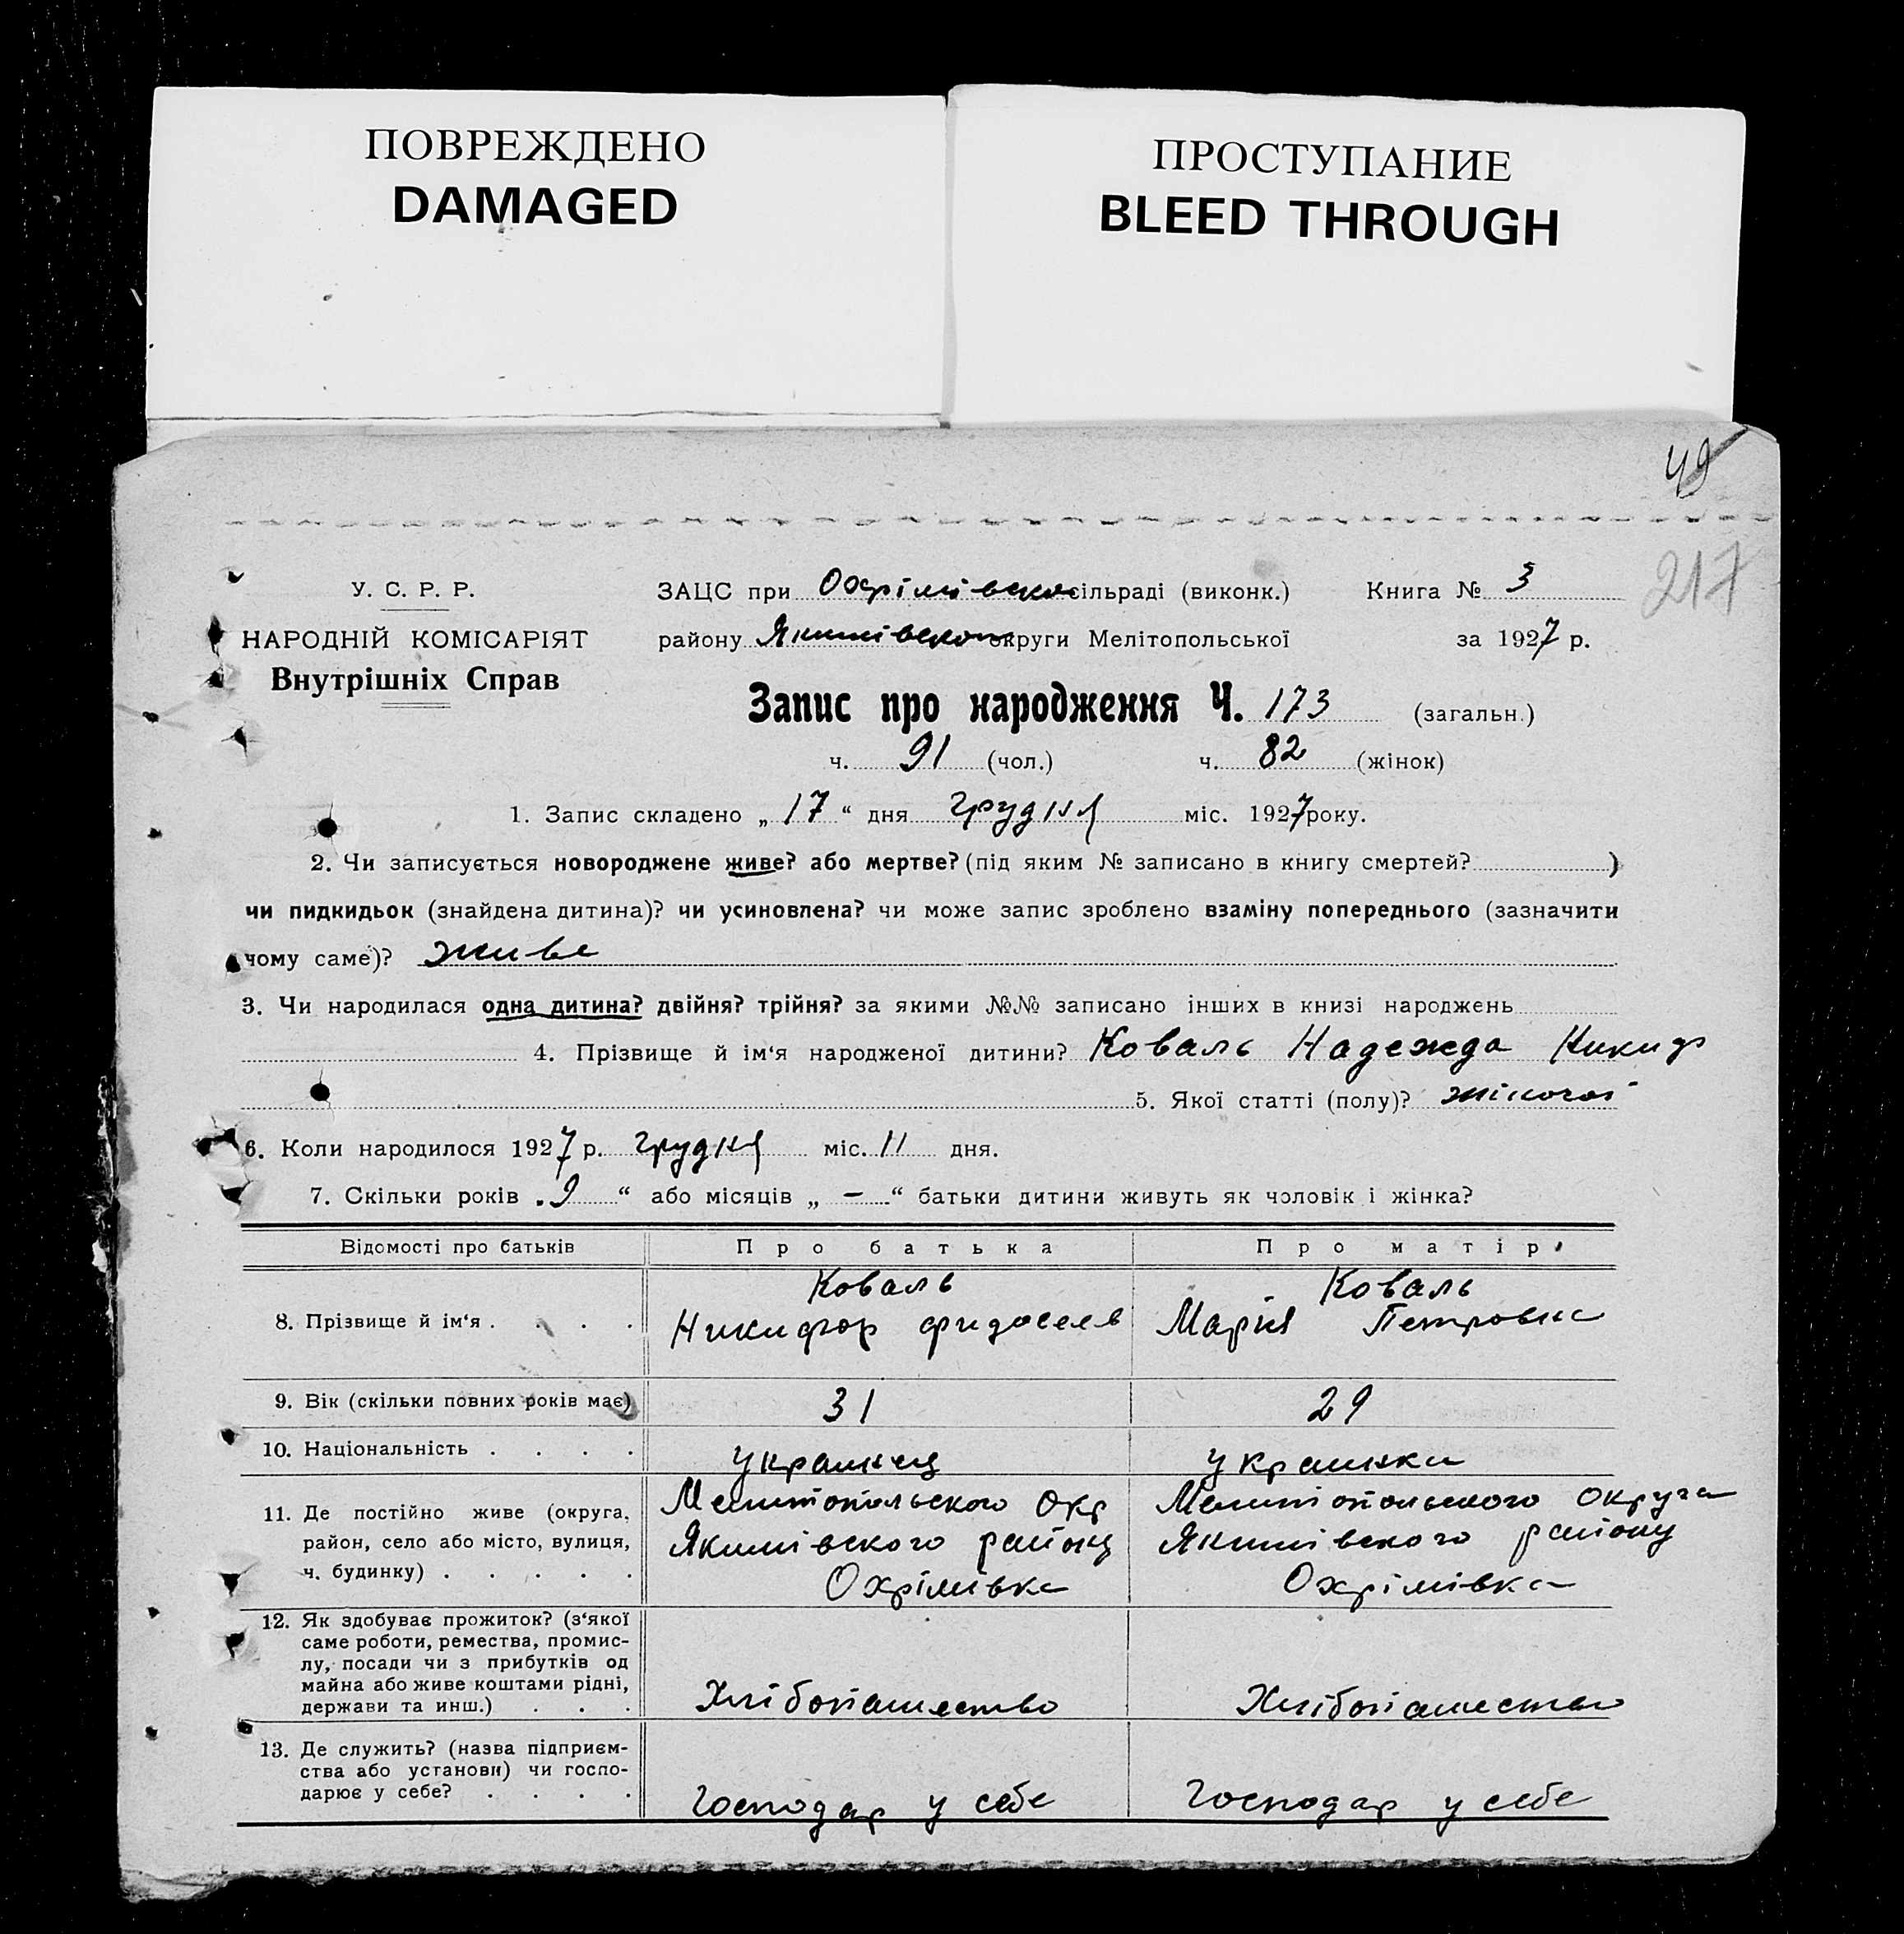 ПОВРЕЖДЕНО
DAMAGED
ПРОСТУПАНИЕ
BLEED THROUGH
49
217
У. С. Р. Р.
НАРОДНІЙ КОМІСАРІЯТ
Внутрішніх Справ
ЗАЦС при Охрімівско сільраді (виконк.) Книга № 3
району Якимівского округи Мелітопольської за 1927 р.
Запис про народження Ч. 173 (загальн.)
ч. 91 (чол.) ч. 82 (жінок)
1. Запис складено „ 17 “ дня грудня міс. 1927 року.
2. Чи записується новороджене живе? або мертве? (під яким № записано в книгу смертей? )
чи пидкидьок (знайдена дитина)? чи усиновлена? чи може запис зроблено взаміну попереднього (зазначити
чому саме)? живе
3. Чи народилася одна дитина? двійня? трійня? за якими №№ записано інших в книзі народжень
4. Прізвище й ім‘я народженої дитини? Коваль Надежда
5. Якої статті (полу)? жіночої
6. Коли народилося 1927 р. грудня міс. 11 дня.
7. Скільки років „ 9 “ або місяців „ — “ батьки дитини живуть як чоловік і жінка?
Відомості про батьків Про батька Про матір
8. Прізвище й ім‘я . . . . Коваль Никифор Фидосеев Коваль Мария Петровна
9. Вік (скільки повних років має) 31 29
10. Національність . . . . украинец украинка
11. Де постійно живе (округа, Мелитопольского Окр Мелитопольского округа
район, село або місто, вулиця, Якимівского району Якимівского району
ч. будинку) . . . . . Охрімівка Охрімівка
12. Як здобуває прожиток? (з‘якої
саме роботи, ремества, промис-
лу, посади чи з прибутків од
майна або живе коштами рідні,
держави та инш.) . . . Хлібопашество Хлібопашество
13. Де служить? (назва підприєм-
ства або установи) чи госпо-
дарює у себе? . . . . Господар у себе Господар у себе